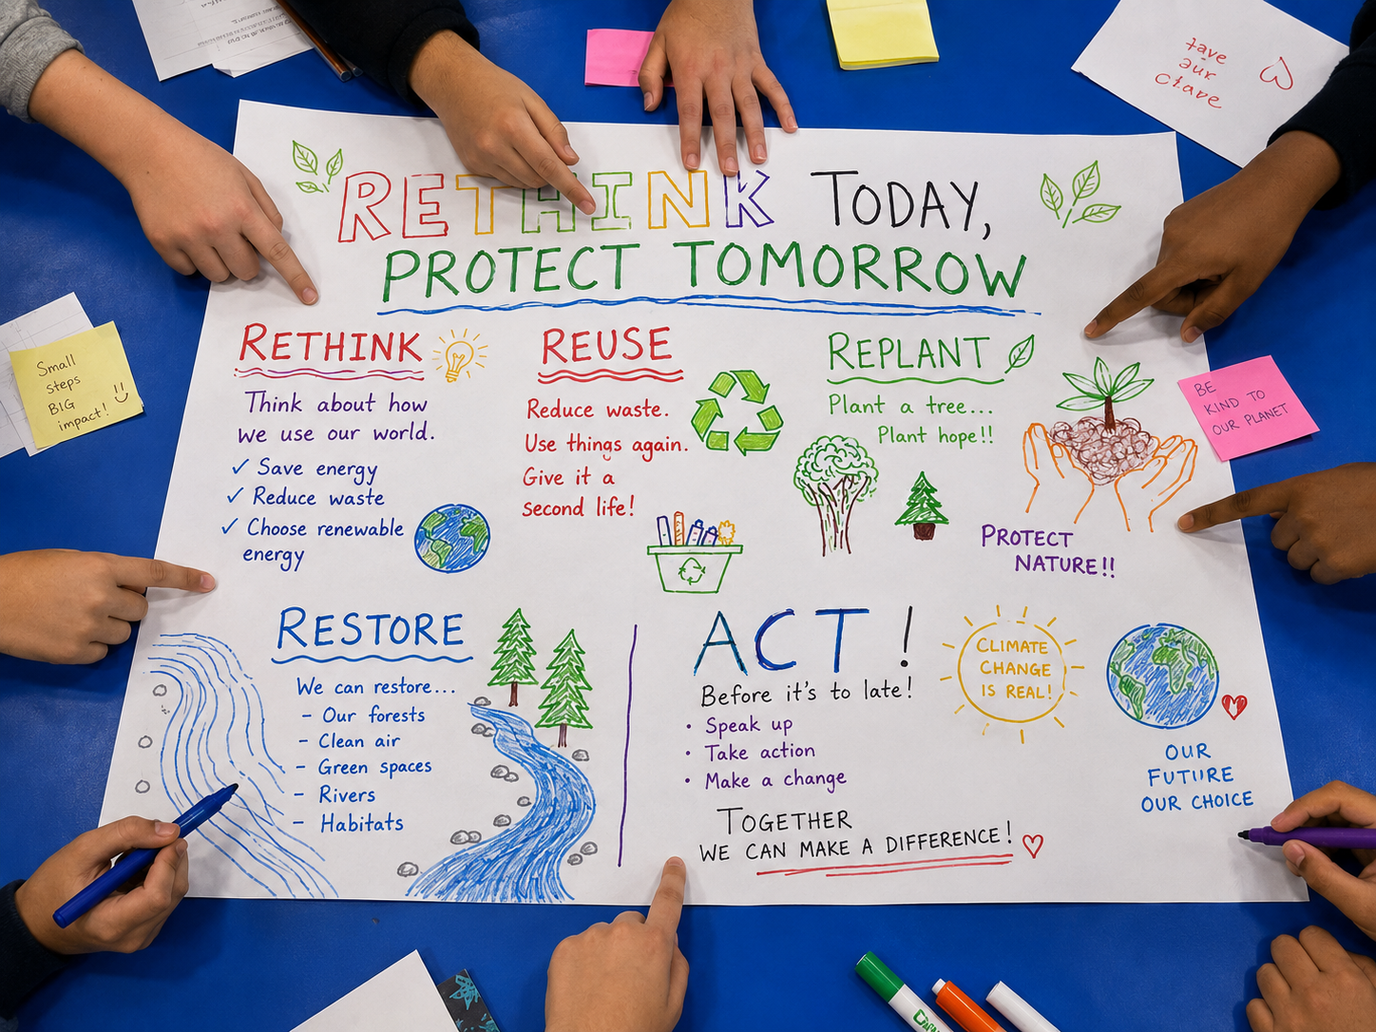 RETHINK TODAY,
PROTECT TOMORROW
RETHINK
Think about how
we use our world.
✓ Save energy
✓ Reduce waste
✓ Choose renewable
energy
REUSE
Reduce waste.
Use things again.
Give it a
second life!
REPLANT
Plant a tree...
Plant hope!!
PROTECT
NATURE!!
RESTORE
We can restore...
- Our forests
- Clean air
- Green spaces
- Rivers
- Habitats
ACT!
Before it's to late!
• Speak up
• Take action
• Make a change
TOGETHER
WE CAN MAKE A DIFFERENCE!
CLIMATE
CHANGE
IS REAL!
OUR
FUTURE
OUR CHOICE
Small
steps
BIG
impact!
BE
KIND TO
OUR PLANET